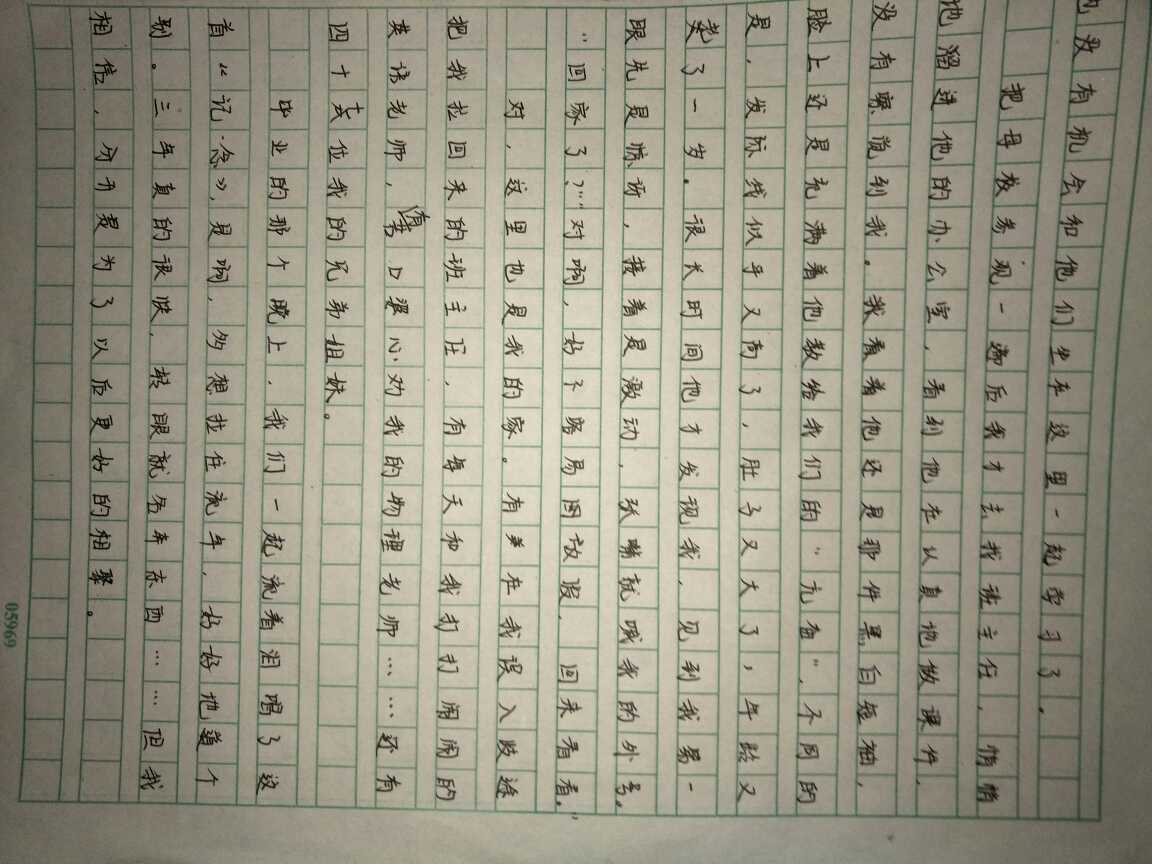 没有机会和他们坐在这里一起学习了。
把母校参观一遍后我才去找班主任，悄悄
地溜进他的办公室，看到他在认真地做课件，
没有察觉到我。我看着他还是那件黑白短袖，
脸上还是充满着他教给我们的“充奋”，不同的
是，发际线似乎又高了，肚子又大了，年龄又
老了一岁。很长时间他才发现我，见到我第一
眼先是惊讶，接着是激动，张嘴就喊我的外号。
“回家了？”“对啊，好不容易国放假，回来看看。”
对，这里也是我的家。有在我误入歧途
把我拉回来的班主任，有每天和我打打闹闹的
英语老师，有苦口婆心劝我的物理老师……还有
四十哉位我的兄弟姐妹。
毕业的那个晚上，我们一起流着泪唱了这
首《记·念》，是啊，多想拉住流年，好好地道个
别。三年真的很快，转眼就各奔东西……但我
相信，分开是为了以后更好的相聚。
05969